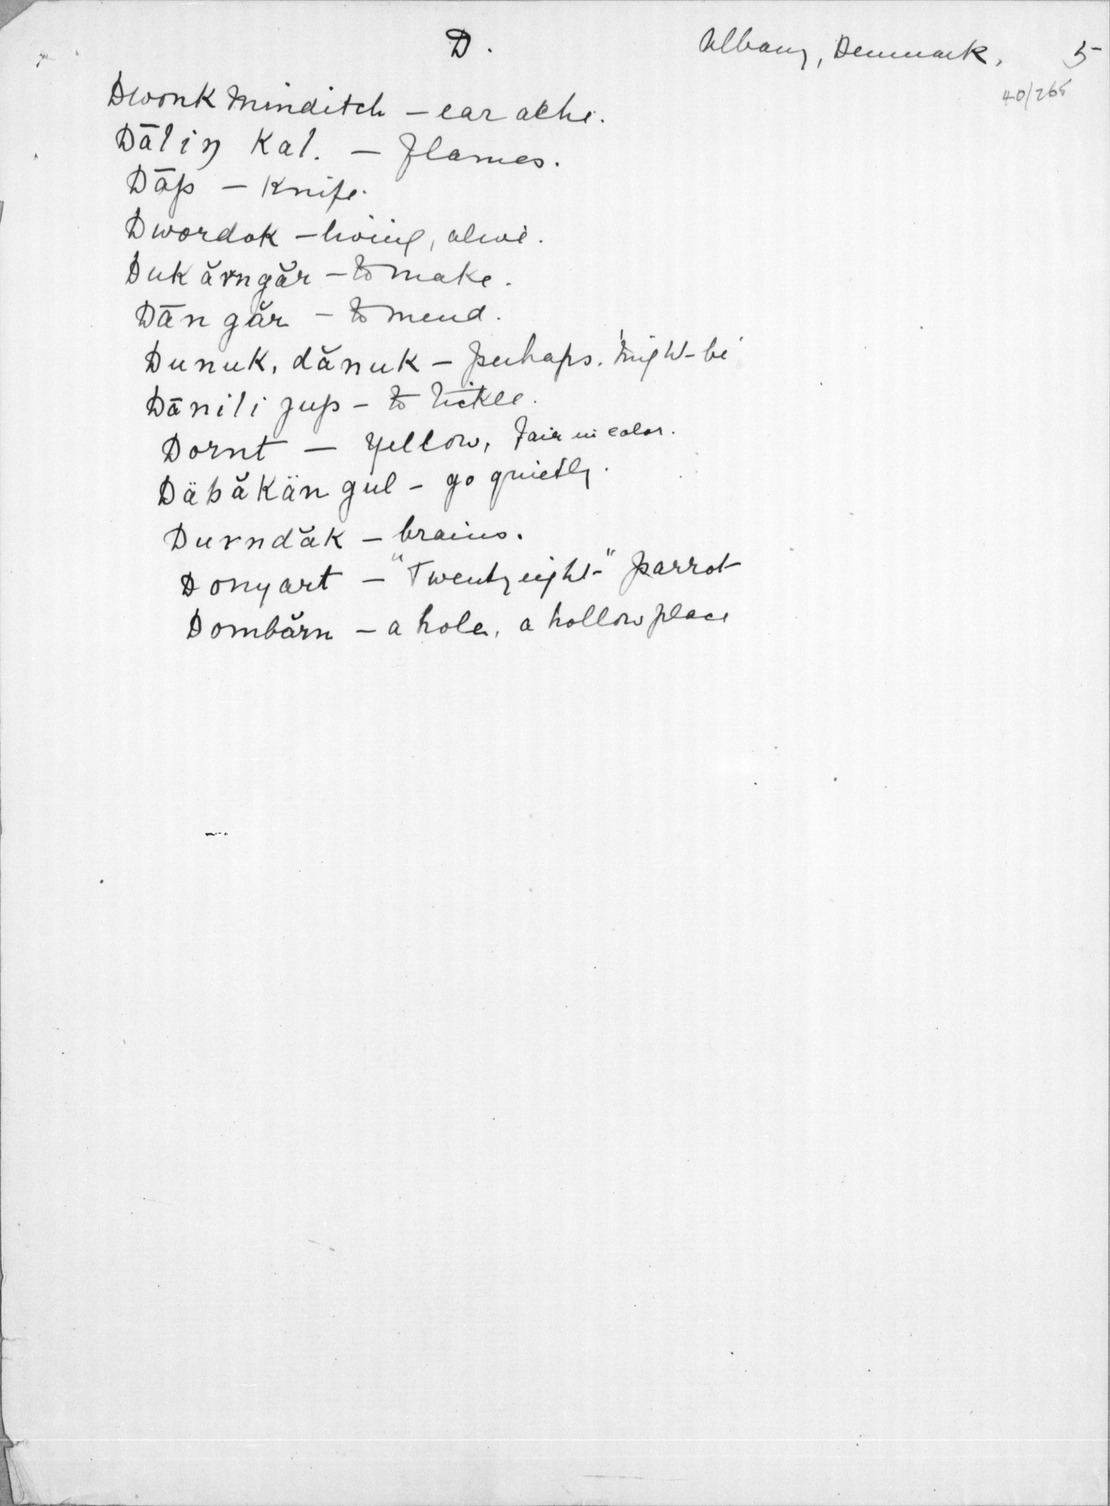 D. Albany, Denmark. 5
40/265
Dwonk minditch – ear ache.
Dālin Kal. – flames.
Dāp – Knife.
Dwordak – living, alive.
Dukărngăr – to make.
Dān găr – to mend.
Dunuk, dănuk – perhaps. 'might be'
Dānili jup – to tickle.
Dornt – yellow, fair in color.
Däbăkän gul – go quietly.
Durndăk – brains.
Donyart – "Twenty eight" parrot
Dombărn – a hole, a hollow place